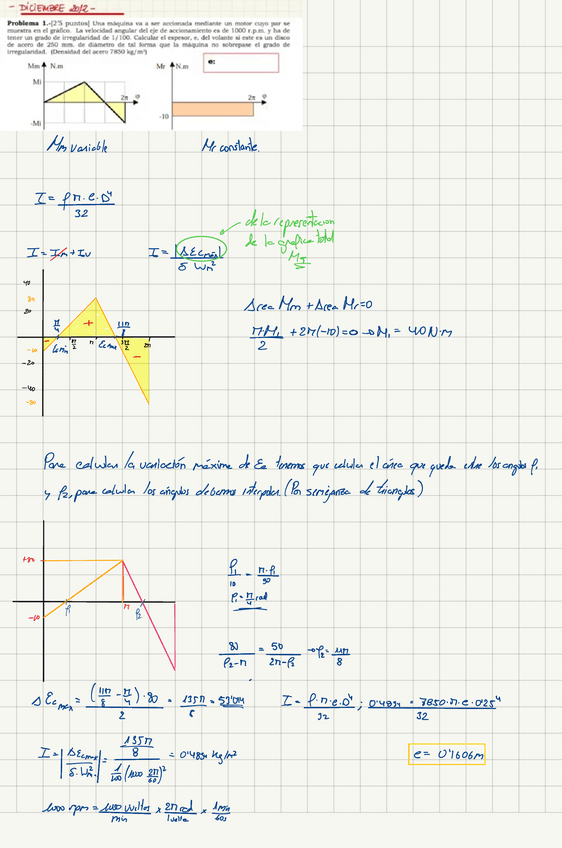 - DICIEMBRE 2012 -
Problema 1.-[2'5 puntos] Una máquina va a ser accionada mediante un motor cuyo par se
muestra en el gráfico. La velocidad angular del eje de accionamiento es de 1000 r.p.m. y ha de
tener un grado de irregularidad de 1/100. Calcular el espesor, e, del volante si este es un disco
de acero de 250 mm. de diámetro de tal forma que la máquina no sobrepase el grado de
irregularidad. (Densidad del acero 7850 kg/m³)
Mm N.m
Mi
-Mi
2π φ
Mr N.m
e:
-10
2π φ
Mm variable
Mr constante.
I = ρ·π·e·D⁴ / 32
de la representacion
de la grafica total
I = Im + Iv
I = |ΔEcmáx| / δ·Wm²
20
-10
-20
-40
π/4
π/2
π
11π/8
3π/2
2π
+
-
Area Mm + Area Mr = 0
πM₁/2 + 2π(-10) = 0 → M₁ = 40 N·m
Para calcular la variación máxima de Ec tenemos que calcular el área que queda entre los angulos φ₁
y φ₂, para calcular los ángulos debemos interpolar (Por semejanza de triangulos)
+30
-10
φ₁
π
φ₂
φ₁ = π/4 rad
ΔEcmax = (11π/8 - π/4)·30 / 2
I = ρ·π·e·D⁴ / 32 ; = 7850·π·e·0'25⁴ / 32
I = |ΔEcmax / δ·Wm²| = 135π/8 / 1/100 (1000 2π/60)²
e = 0'1606m
1000 rpm = 1000 vueltas/min × 2π rad/1 vuelta × 1 min/60s